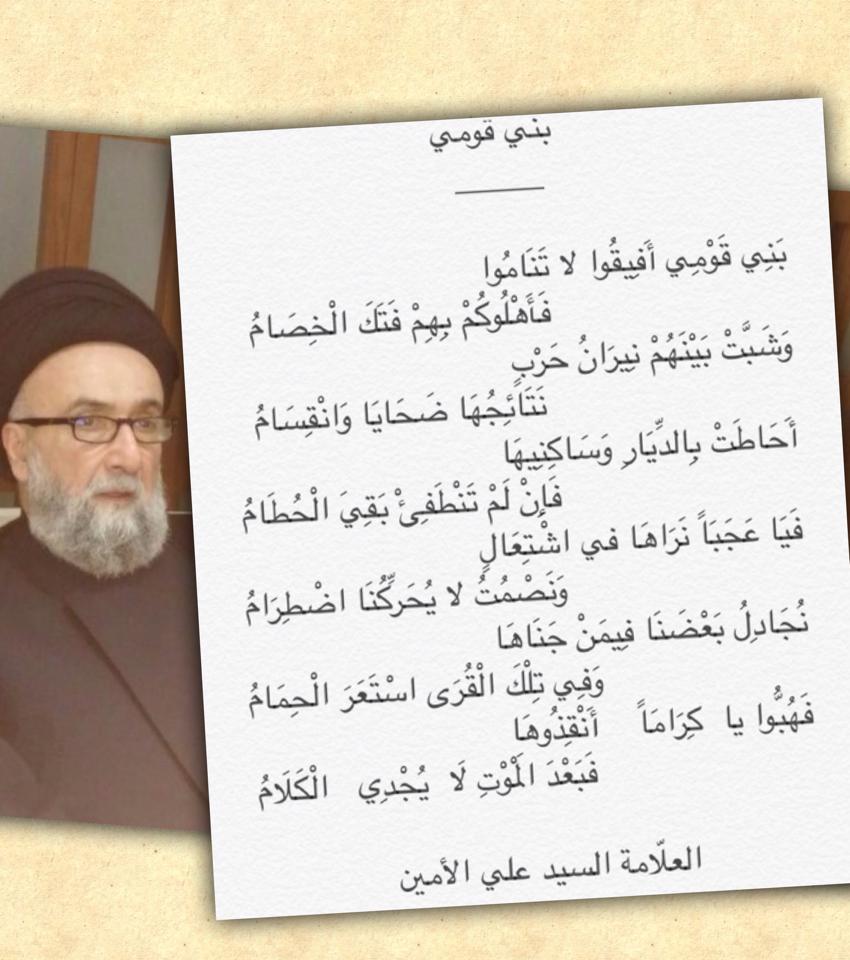 بني قومي
بَنِي قَوْمِي أَفِيقُوا لا تَنَامُوا
فَأَهْلُوكُمْ بِهِمْ فَتَكَ الْخِصَامُ
وَشَبَّتْ بَيْنَهُمْ نِيرَانُ حَرْبٍ
نَتَائِجُهَا ضَحَايَا وَانْقِسَامُ
أَحَاطَتْ بِالدِّيَارِ وَسَاكِنِيهَا
فَإِنْ لَمْ تَنْطَفِئْ بَقِيَ الْحُطَامُ
فَيَا عَجَبَاً نَرَاهَا في اشْتِعَالٍ
وَنَصْمُتُ لا يُحَرِّكُنَا اضْطِرَامُ
نُجَادِلُ بَعْضَنَا فِيمَنْ جَنَاهَا
وَفِي تِلْكَ الْقُرَى اسْتَعَرَ الْحِمَامُ
فَهُبُّوا يا كِرَامَاً أَنْقِذُوهَا
فَبَعْدَ الْمَوْتِ لَا يُجْدِي الْكَلَامُ
العلّامة السيد علي الأمين